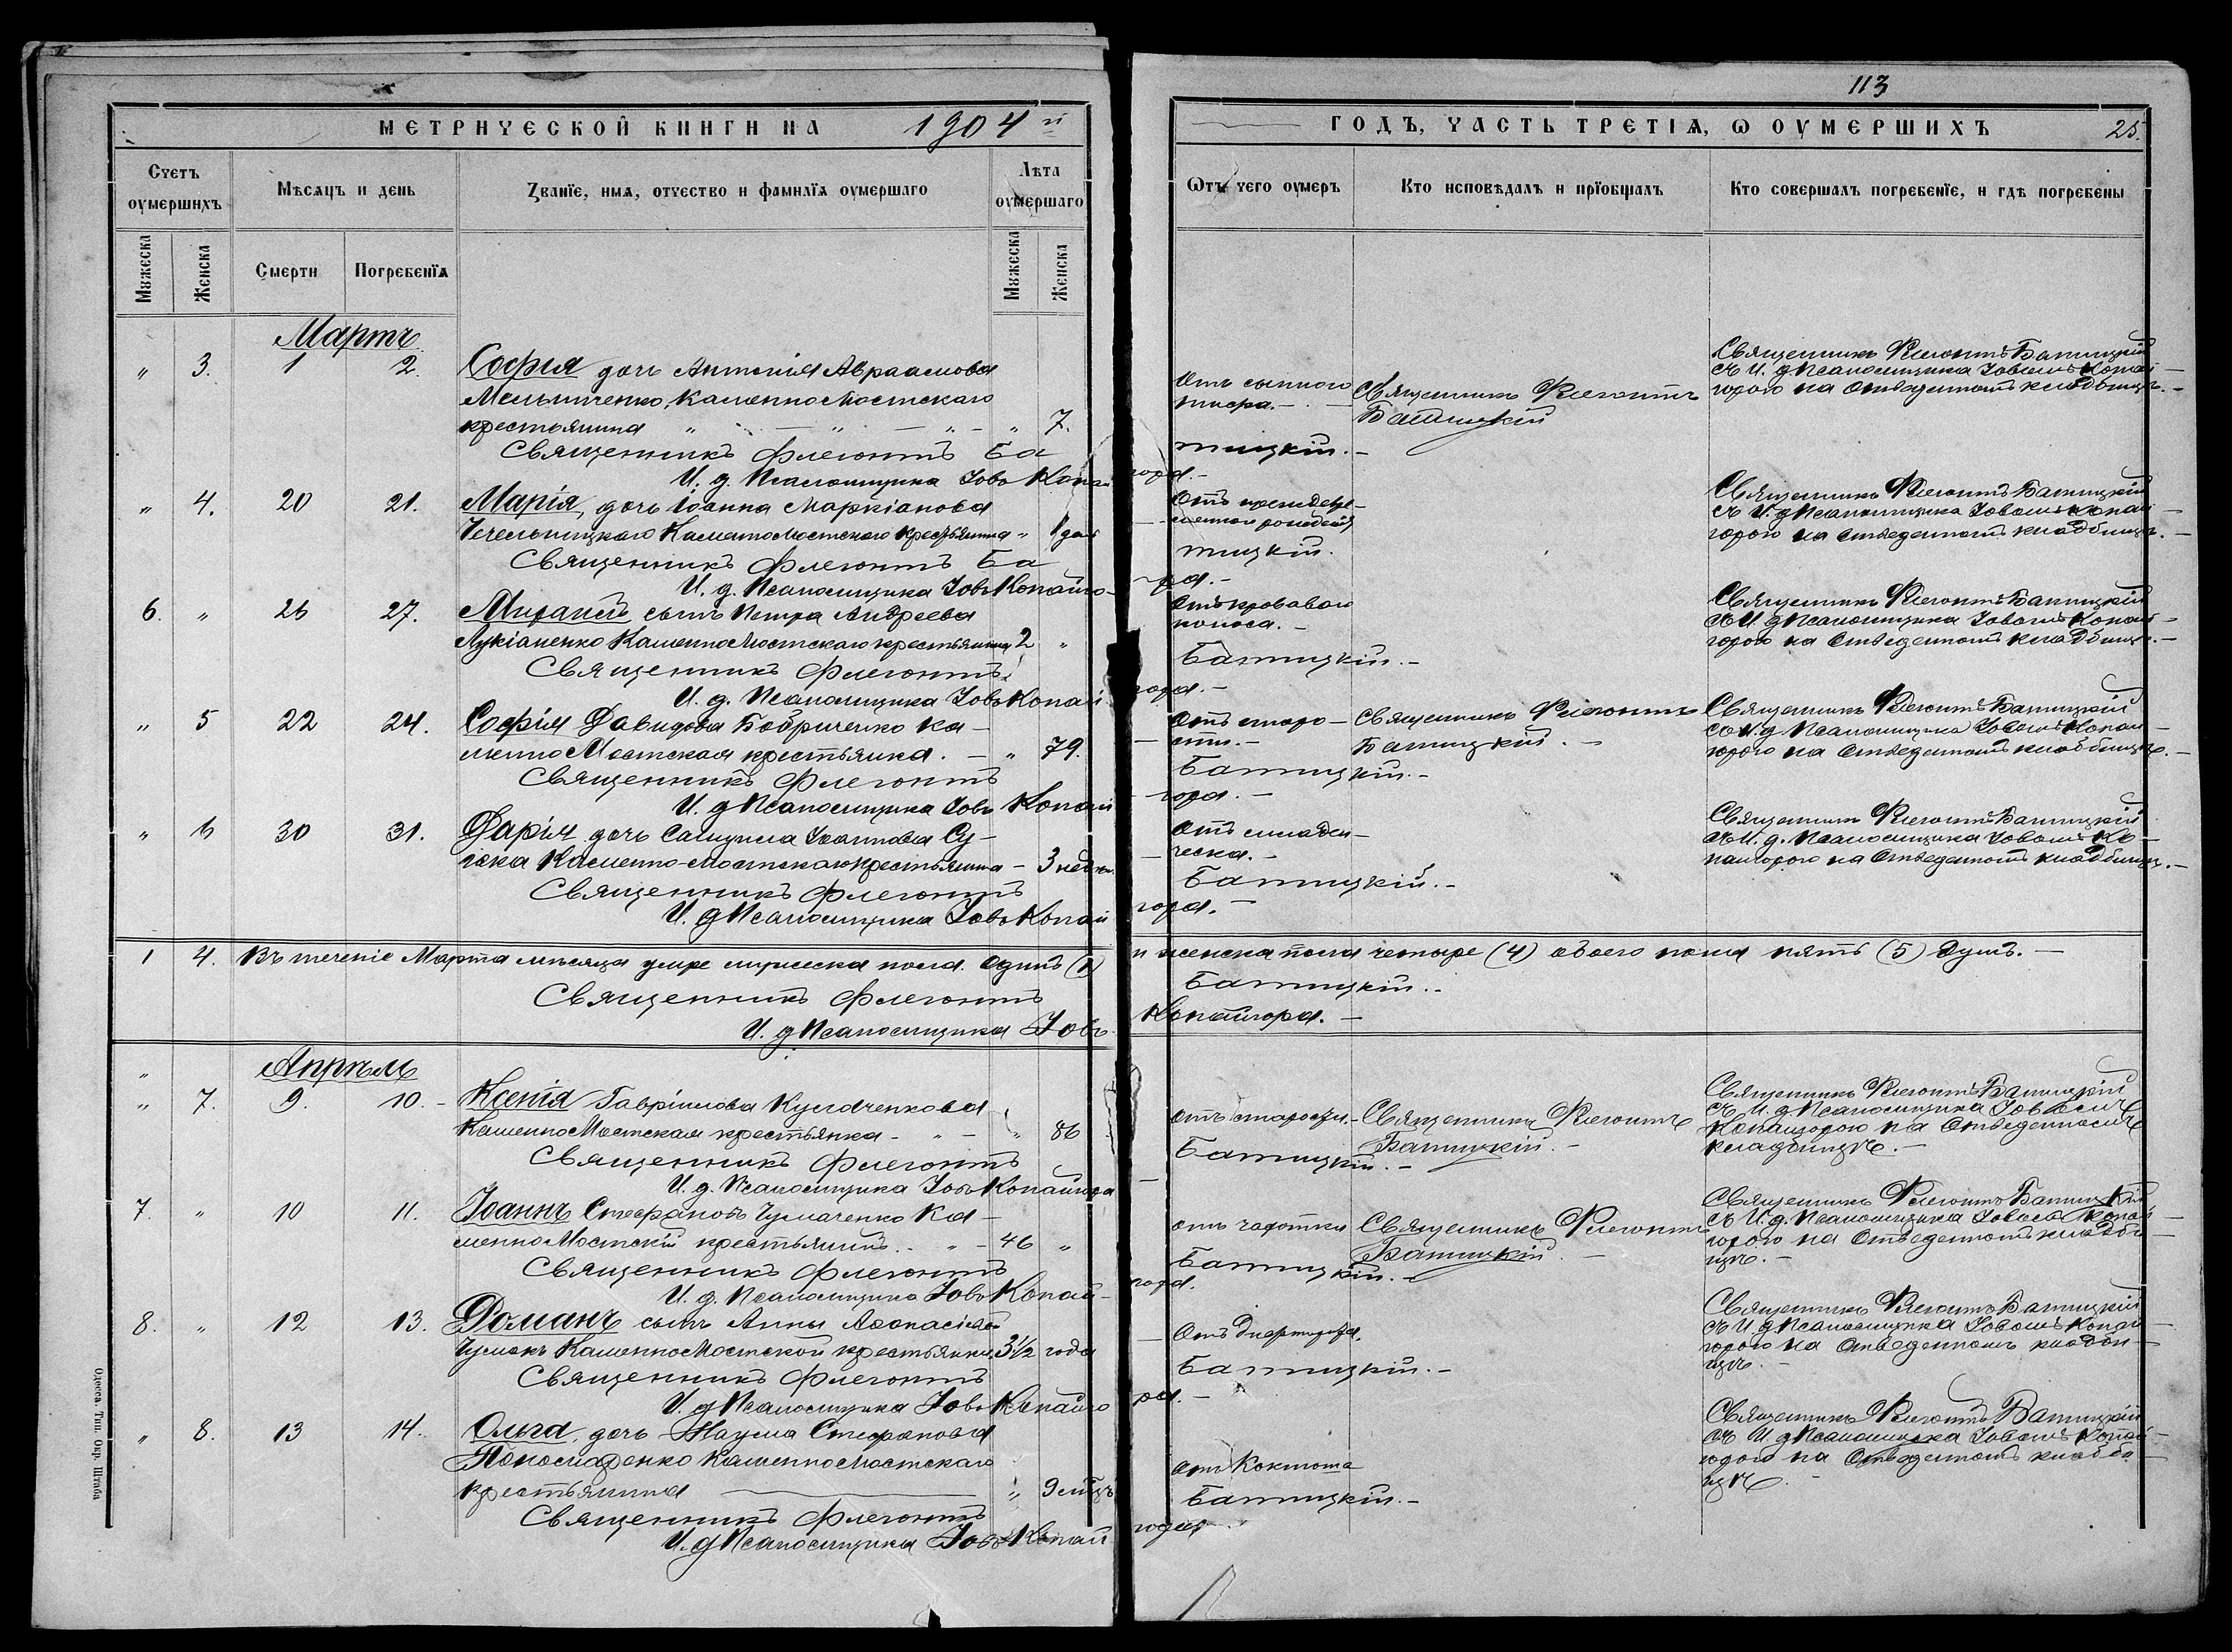 113
МЕТРИЧЕСКОЙ КНИГИ НА 1904 й
ГОДЪ, ЧАСТЬ ТРЕТІЯ, Ѡ ОУМЕРШИХЪ 25.
Счетъ оумершихъ
Мѣсяцъ и день
Званїе, имя, отчество и фамилїя оумершаго
Лѣта оумершаго
Отъ чего оумеръ
Кто исповѣдалъ и прїобщалъ
Кто совершалъ погребенїе, и гдѣ погребены
Мꙋжеска
Женска
Смерти
Погребенїя
Мꙋжеска
Женска
Мартъ
" 3. 1 2. Софія дочь Антонія Авраамова
Мельниченко, Каменно Мостскаго
крестьянина " — " — " — " 7.
Священникъ Флегонтъ Ба
тицкій. —
И. д. Псаломщика Іовъ Копай
гора. —
Священникъ Флегонтъ
Батицкій
Священникъ Флегонтъ Батицкій
съ И. д. Псаломщика Іовомъ Копай —
горою на Отведенномъ кладбищѣ. —
" 4. 20 21. Марія, дочь Іоанна Маркіанова
Чечельницкаго Каменно Мостскаго крестьянина " 1 день
Священникъ Флегонтъ Ба
тицкій.
И. д. Псаломщика Іовъ Копайго-
ра. —
Священникъ Флегонтъ Батицкій
съ И. д Псаломщика Іовомъ Копай —
горою на Отведенномъ кладбищѣ. —
6. " 26 27. сынъ Петра Андреева
Лукіаненко Каменно Мостскаго крестьянина 2 "
Священникъ Флегонтъ
Батицкій. —
И. д. Псаломщика Іовъ Копай
гора. —
Отъ кроваваго
поноса. —
Священникъ Флегонтъ Батицкій
съ И. д Псаломщика Іовомъ Копай —
горою на Отведенномъ кладбищѣ. —
" 5 22 24. Софія Давидова Бобриченко Ка —
менно Мостская крестьянка. — " 79.
Священникъ Флегонтъ
Батицкій. —
И. д Псаломщика Іовъ Копай
гора. —
Отъ старо —
сти. —
Священникъ Флегонтъ
Батицкій. —
Священникъ Флегонтъ Батицкій
съ И. д Псаломщика Іовомъ Копай —
горою на Отведенномъ кладбищѣ. —
" 6 30 31. Дарія дочь Самуила Іоаннова
Каменно-Мостскаго крестьянина — 3 недѣли
Священникъ Флегонтъ
Батицкій. —
И. д Псаломщика Іовъ Копай
гора. —
Отъ младен —
ческа. —
Священникъ Флегонтъ Батицкій
съ И. д. Псаломщика Іовомъ Ко —
пайгорою на Отведенномъ кладбищѣ. —
1 4. Въ теченіе Марта мѣсяца умре мужеска пола. одинъ (1) и женска пола четыре (4) обоего пола пять (5) душъ. —
Священникъ Флегонтъ Батицкій. —
И. д Псаломщика Іовъ Копайгора. —
Апрѣль
" 7. 9. 10. — Ксенія Гавріилова
Каменно Мостская крестьянка — " — " 86
Священникъ Флегонтъ
Батицкій. —
И. д. Псаломщика Іовъ Копайгора
отъ старости. —
Священникъ Флегонтъ
Батицкій. —
Священникъ Флегонтъ Батицкій
съ И. д Псаломщика Іовомъ
Копайгорою на Отведенномъ
кладбищѣ. —
7. " 10 11. Іоаннъ Стефановъ Чумаченко Ка —
менно Мостскій крестьянинъ. " — 46 "
Священникъ Флегонтъ
Батицкій. —
И. д. Псаломщика Іовъ Копай-
гора.
отъ чахотки
Священникъ Флегонтъ
Батицкій. —
Священникъ Флегонтъ Батицкій
съ И. д. Псаломщика Іовомъ Копай —
горою на Отведенномъ кладби —
щѣ. —
8. " 12 13. Романъ сынъ Анны Аѳанасіевой
Чумакъ Каменно Мостской крестьянки. 3½ года
Священникъ Флегонтъ
Батицкій. —
И. д Псаломщика Іовъ Копайго
ра. —
Отъ дифтерита.
Священникъ Флегонтъ Батицкій
съ И. д Псаломщика Іовомъ Копай —
горою на Отведенномъ кладби —
щѣ. —
" 8. 13 14. Ольга, дочь Наума Стефанова
Каменно Мостскаго
крестьянина — " 9 мѣц
Священникъ Флегонтъ
Батицкій. —
И. д Псаломщика Іовъ Копай
гора
отъ Коклюша
Священникъ Флегонтъ Батицкій
съ И. д Псаломщика Іовомъ Копай —
горою на Отведенномъ кладби
щѣ. —
Одесса. Тип. Окр. Штаба